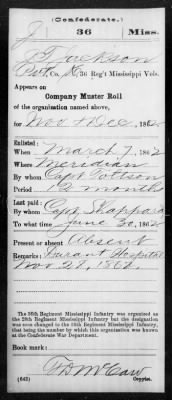 (Confederate.)
J 36 Miss.
J T Jackson
Pvt, Co. K, 36 Reg't Mississippi Vols.
Appears on
Company Muster Roll
of the organization named above,
for Nov & Dec, 1862
Enlisted:
When March 7, 1862
Where Meridian
By whom Capt Tottson
Period 12 months
Last paid:
By whom Capt Shappard
To what time June 30, 1862
Present or absent Absent
Remarks: Durant Hospital
Nov 27, 1862
The 36th Regiment Mississippi Infantry was organized as
the 29th Regiment Mississippi Infantry but the designation
was soon changed to the 36th Regiment Mississippi Infantry,
that being the number by which this organization was known
at the Confederate War Department.
Book mark:
McCaw
(642) Copyist.